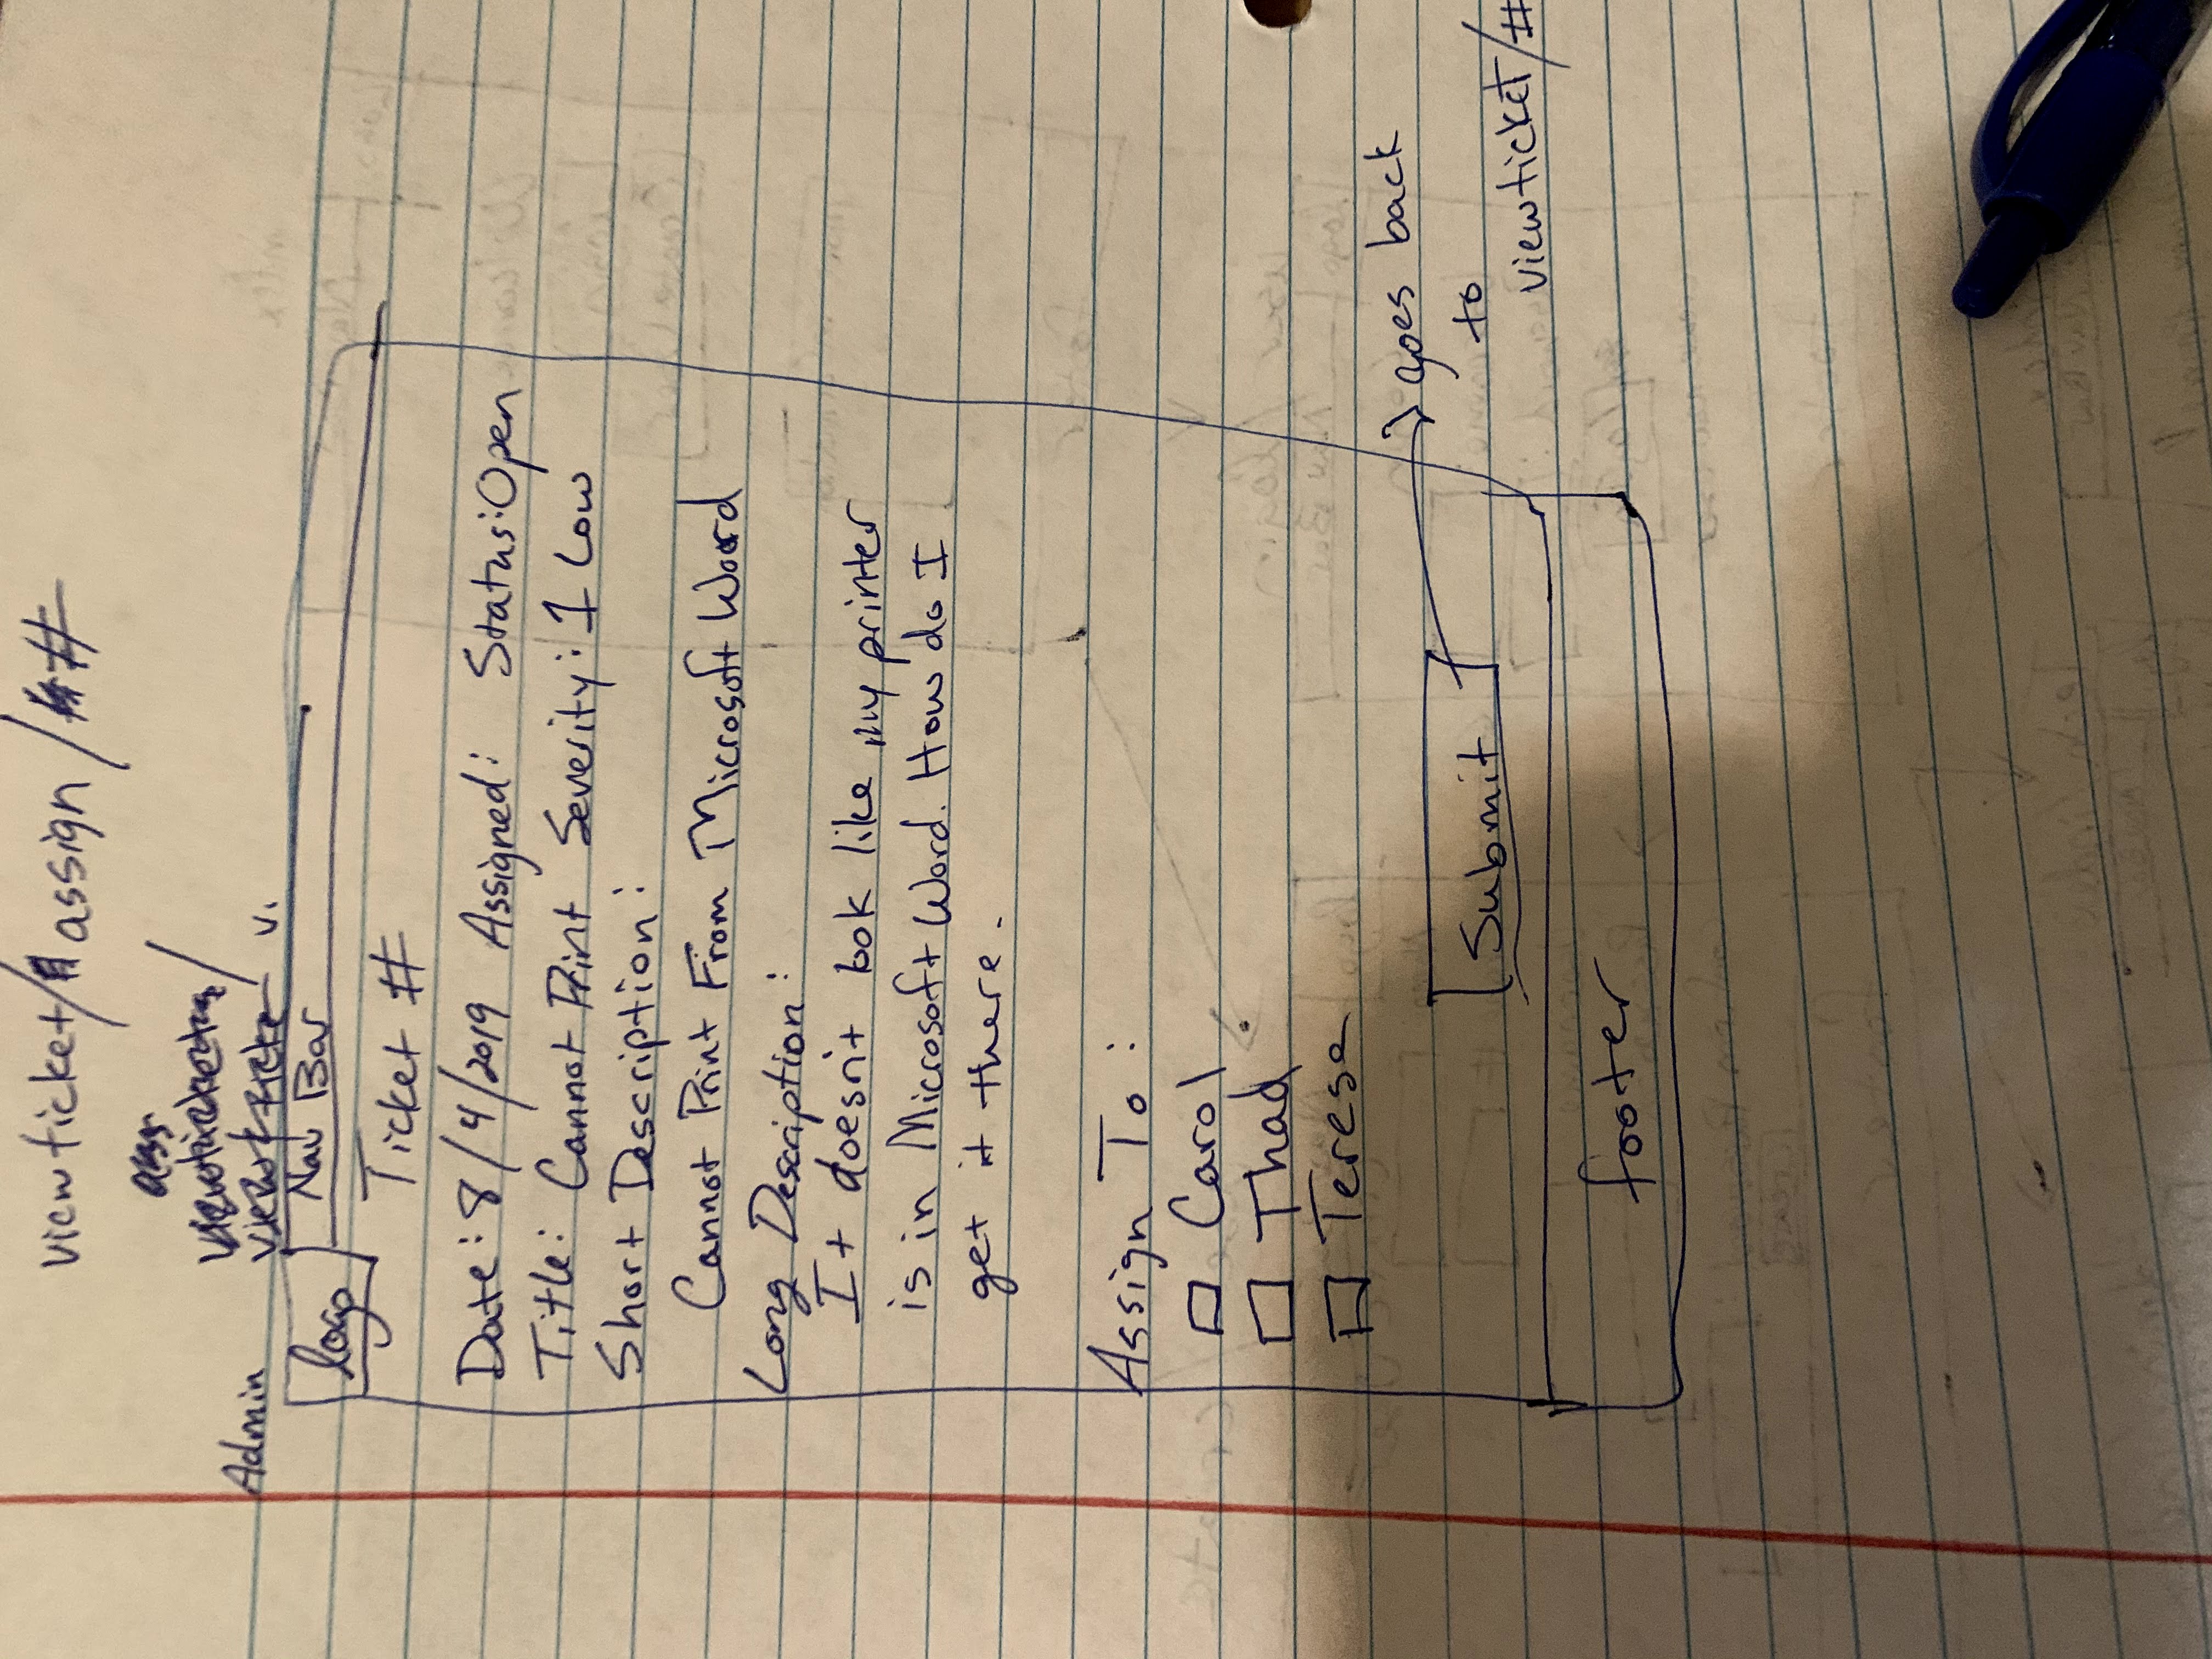 viewticket/assign/#
Admin
v.
logo
Nav Bar
Ticket #
Date: 8/4/2019 Assigned: Status: Open
Title: Cannot Print Severity: 1 Low
Short Description:
Cannot Print From Microsoft Word
Long Description:
It doesn't look like my printer
is in Microsoft Word. How do I
get it there.
Assign To:
Carol
Thad
Teresa
Submit
goes back
to
viewticket/#
footer